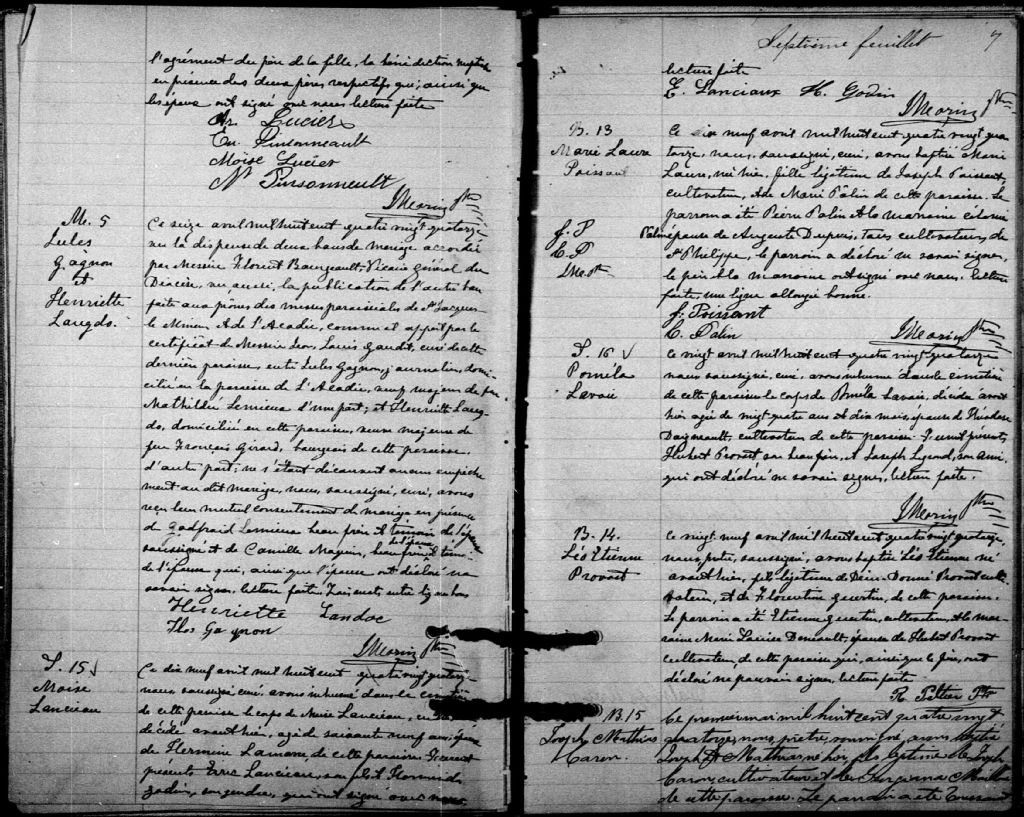 l'agrément du père de la fille, la bénédiction nuptiale
en présence des deux pères respectifs qui, ainsi que
les époux ont signé avec nous lecture faite
Ar. Lucier
Em. Pinsonneault
Moïse Lucier
N. Pinsonneault
JMorin Ptre
M. 5
Jules
Gagnon
et
Henriette
Langdo.
Ce seize avril mil huit cent quatre vingt quatorze
vu la dispense de deux bans de mariage accordée
par Messire Florent Bourgeault, Vicaire Général du
Diocèse, vu aussi, la publication de l'autre ban
faite aux prônes des messes paroissiales de St Jacques
le Mineur & de l'Acadie, comme il appert par le
certificat de Messire Louis Gaudet, curé de cette
dernière paroisse, entre Jules Gagnon, journalier, domi-
cilié en la paroisse de L'Acadie, veuf majeur de feu
Mathildée Lemieux d'une part; et Henriette Lang-
do, domiciliée en cette paroisse, veuve majeure de
feu François Girard, bourgeois de cette paroisse
d'autre part; ne s'étant découvert aucun empêche-
ment au dit mariage, nous, soussigné, curé, avons
reçu leur mutuel consentement de mariage en présence
de Godfroid Lemieux beau frère & témoin de l'époux
soussigné et de Camille Magnin, beau frère & témoin
de l'épouse qui, ainsi que l'épouse ont déclaré ne
savoir signer, lecture faite.
Henriette Landoc
Flos Gagnon
JMorin Ptre
S. 15
Moise
Lanciau
Ce dix neuf avril mil huit cent quatre vingt quatorze
nous, soussigné curé, avons inhumé dans le cimetière
de cette paroisse le corps de Moïse Lanciau,
décédé avant hier, agé de soixante neuf ans, époux
de Hermine Lamarre, de cette paroisse. Furent
présents Lanciau, son fils & Hormisdas
Godin, son gendre, qui ont signé avec nous
Septième feuillet 7
lecture faite
E. Lanciaux H. Godin
JMorin Ptre
B. 13
Marie Laura
Poissant
J. P
C. P
Ce dix neuf avril mil huit cent quatre vingt qua-
torze, nous, soussigné, curé, avons baptisé Marie
Laura, née hier, fille légitime de Joseph Poissant,
cultivateur, & de Marie Palin de cette paroisse. Le
parrain a été Pierre Palin & la marraine
Palin épouse de Auguste Dupuis, tous cultivateurs, de
St Philippe, le parrain a déclaré ne savoir signer,
le père & la marraine ont signé avec nous, lecture
faite, une ligne allongée bonne.
J. Poissant
C. Palin
JMorin Ptre
S. 16
Poméla
Lavoie
Ce vingt avril mil huit cent quatre vingt quatorze
nous soussigné, curé, avons inhumé dans le cimetière
de cette paroisse le corps de Poméla Lavoie, décédée avant
hier agée de vingt quatre ans & dix mois, épouse de Théodore
Daigneault, cultivateur de cette paroisse. Furent présents
Hubert Provost son beau frère, & Joseph Legrand, son ami,
qui ont déclaré ne savoir signer, lecture faite.
JMorin Ptre
B. 14.
Léo Etienne
Provost
Ce vingt neuf avril mil huit cent quatre vingt quatorze,
nous prêtre, soussigné, avons baptisé Léo Etienne né
avant hier, fils légitime de Dieu-Donné Provost culti-
vateur, et de Florentine Guertin, de cette paroisse.
Le parrain a été Etienne Guertin, cultivateur, & la mar-
raine Marie Louise Deneault, épouse de Hubert Provost
cultivateur, de cette paroisse qui, ainsi que le père, ont
déclaré ne pouvoir signer, lecture faite
R. Pelletier Ptr
B. 15
Joseph Mathias
Caron.
Ce premier mai mil huit cent quatre vingt
quatorze, nous prêtre, soussigné, avons baptisé
Joseph Mathias né hier, fils légitime de Joseph
Caron, cultivateur et de Georgiana
de cette paroisse. Le parrain a été Toussaint